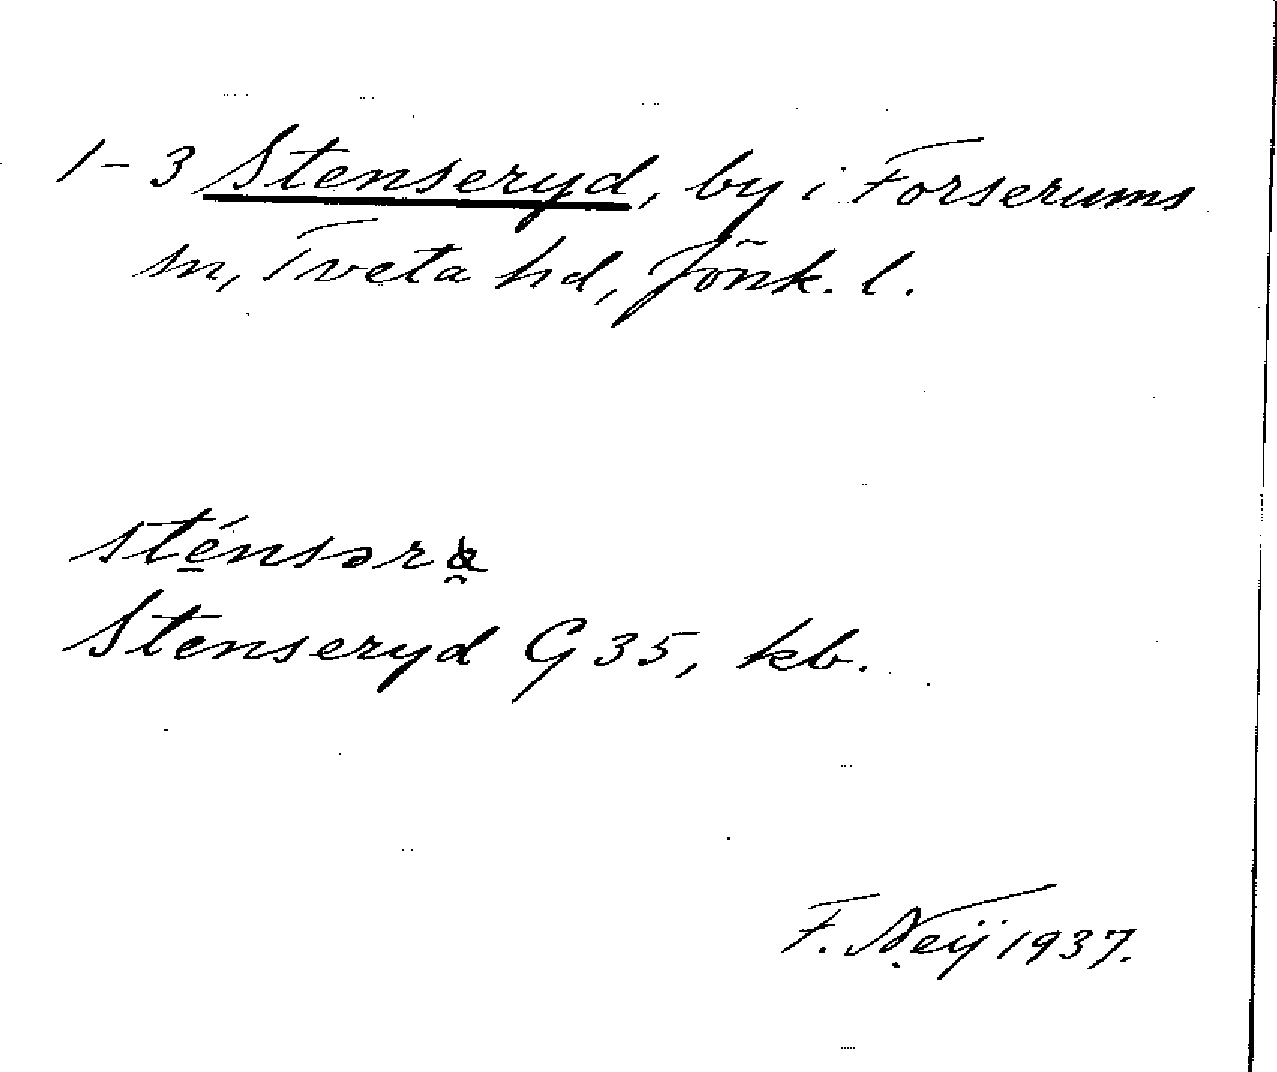 1-3 Stenseryd, by i Forserums
sn, Tveta hd, Jönk. l.
Stenseryd G 35, kb.
F. Neij 1937.